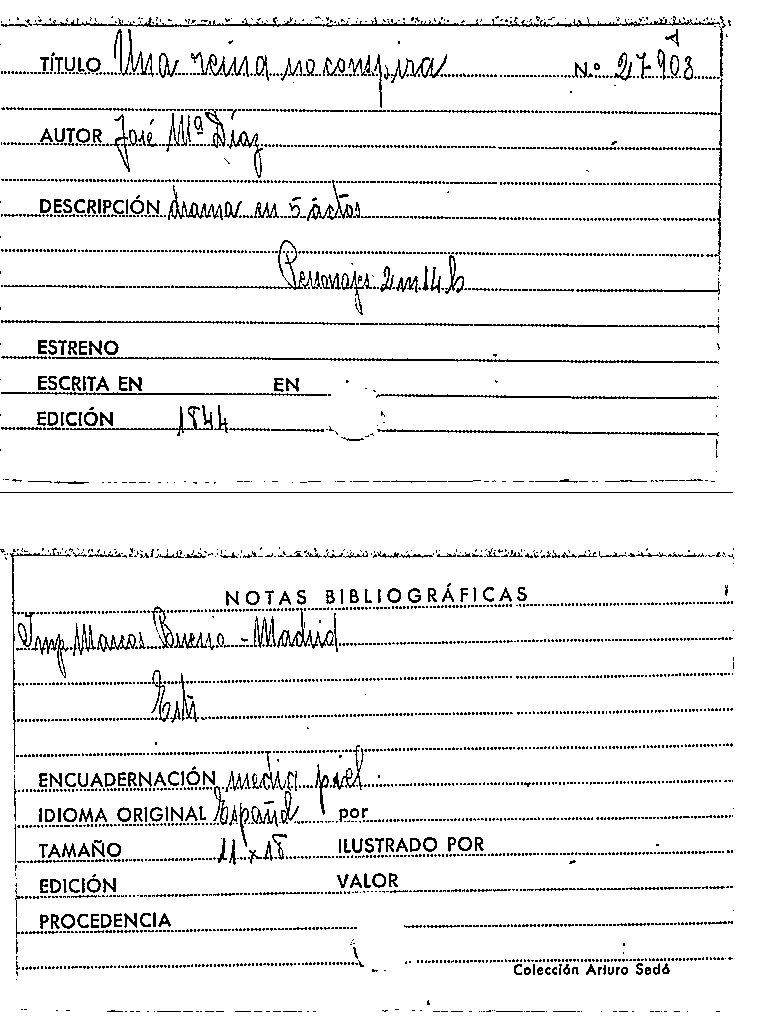 TÍTULO Una reina no conspira N.º 27-903
AUTOR José Mª Díaz
DESCRIPCIÓN drama en 5 actos
Personajes 2 m 14 h
ESTRENO
ESCRITA EN EN
EDICIÓN 1844
NOTAS BIBLIOGRÁFICAS
Imp Marcos Bueno - Madrid
ENCUADERNACIÓN media piel
IDIOMA ORIGINAL Español por
TAMAÑO 11 x 18 ILUSTRADO POR
EDICIÓN VALOR
PROCEDENCIA
Colección Arturo Sedó